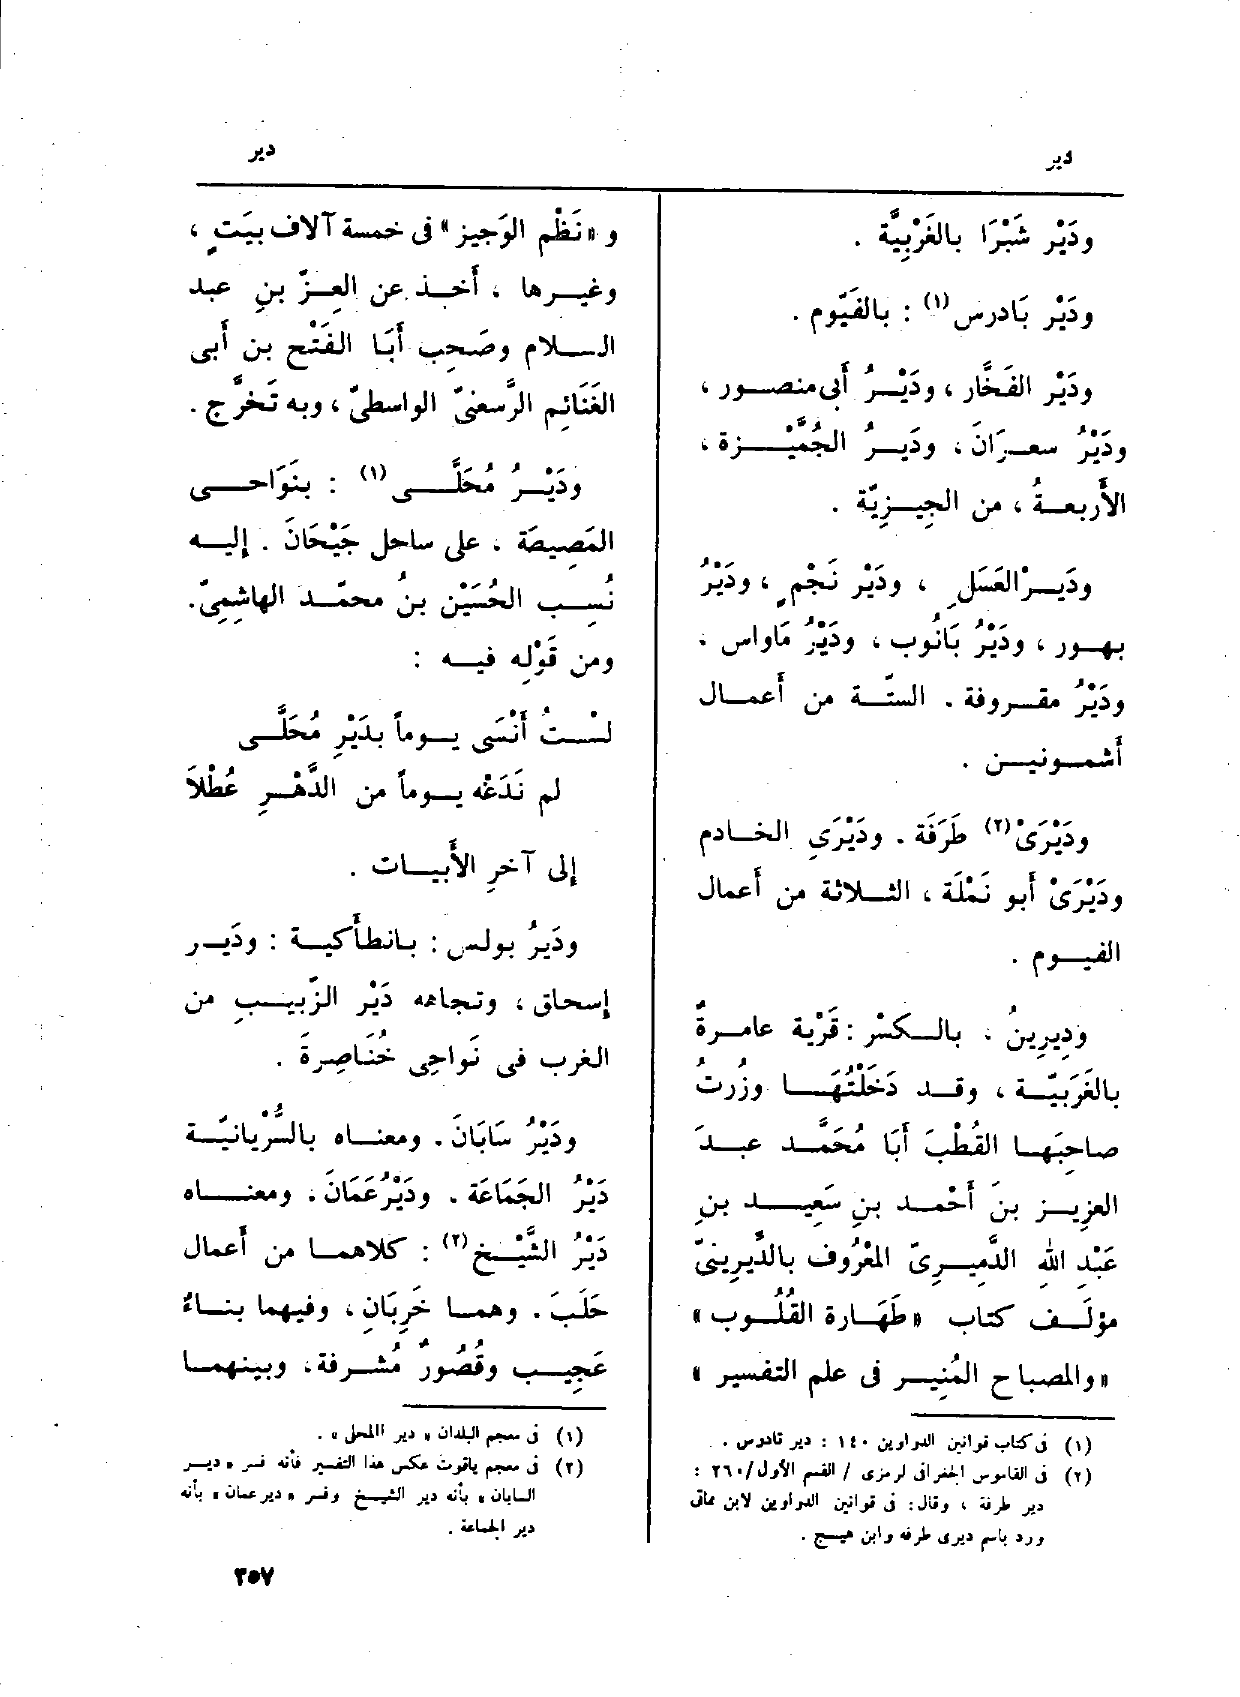 دير
ودَيْر شَبْرَا بالغَرْبِيَّة .
ودَيْر بَادرس(١) : بالفَيّوم .
ودَيْر الفَخَّار ، ودَيْرُ أَبى منصور ،
ودَيْرُ سعرَانَ ، ودَيرُ الجُمَّيْزة ،
الأَربعةُ ، من الجِيزِيّة .
ودَيرْ العَسَلِ ، ودَيْر نَجْمٍ ، ودَيْرُ
بهور ، ودَيْرُ بَانُوب ، ودَيْرُ مَاواس ،
ودَيْرُ مقروفة . الستّة من أَعمال
أشمونين .
ودَيْرَىْ(٢) طَرَفَة . ودَيْرَىِ الخادم
ودَيْرَىْ أَبو نَمْلَة ، الثلاثة من أَعمال
الفيوم .
ودِيرِينُ ، بالكسْر : قَرْية عامرةٌ
بالغَرَبيّة ، وقد دَخَلْتُهَا وزُرتُ
صاحِبَها القُطْبَ أَبَا مُحَمَّد عبدَ
العزيز بنَ أَحْمد بنِ سَعِيد بنِ
عَبْدِ اللهِ الدَّمِيرىّ المْعْرُوف بالدِّيرِينىّ
مؤلّف كتاب «طَهَارة القُلُوب»
«والمصباح المُنِير فى علم التفسير»
(١) فى كتاب قوانين الدواوين ١٤٠ : دير تادرس .
(٢) فى القاموس الجغرافى لرمزى / القسم الأول/٢٦٠ :
دير طرفة ، وقال : فى قوانين الدواوين لابن مماتى
ورد باسم ديرى طرفه وابن هيج .
دير
و «نَظْم الوَجيز» فى خمسة آلاف بيَتٍ ،
وغيرها ، أَخذ عن العِزّ بنِ عبد
السلام وصَحِب أَبَا الفَتْح بن أَبى
الغَنَائِم الرَّسعنىّ الواسطىّ ، وبه تَخرَّج .
ودَيْرُ مُحَلَّى(١) : بنَوَاحى
المَصِيصَة . على ساحل جَيْحَانَ . إليه
نُسِب الحُسَيْن بنُ محمّد الهاشِمِىّ.
ومن قَوْلِه فيه :
لسْتُ أَنْسَى يوماً بدَيْرِ مُحَلَّى
لم نَدَعْه يوماً من الدَّهْرِ عُطْلاَ
إلى آخرِ الأَبيات .
ودَيرُ بولس : بانطأكية : ودَير
إسحاق ، وتجاهه دَيْر الزّبيبِ من
الغرب فى نَواحِى خُنَاصِرةَ .
ودَيْرُ سَابَانَ . ومعناه بالسُّرْيانيّة
دَيْرُ الجَمَاعَة . ودَيْرُ عَمَانَ . ومعناه
دَيْرُ الشَّيْخ(٢) : كلاهما من أَعمال
حَلَبَ . وهما خَرِبَانِ ، وفيهما بناءٌ
عَجِيب وقُصُورٌ مُشرفة ، وبينهما
(١) فى معجم البلدان « دير المحلى » .
(٢) فى معجم ياقوت عكس هذا التفسير فأنه فسر « دير
السابان » بأنه دير الشيخ وفسر « دير عمان » بأنه
دير الجماعة .
٣٥٧